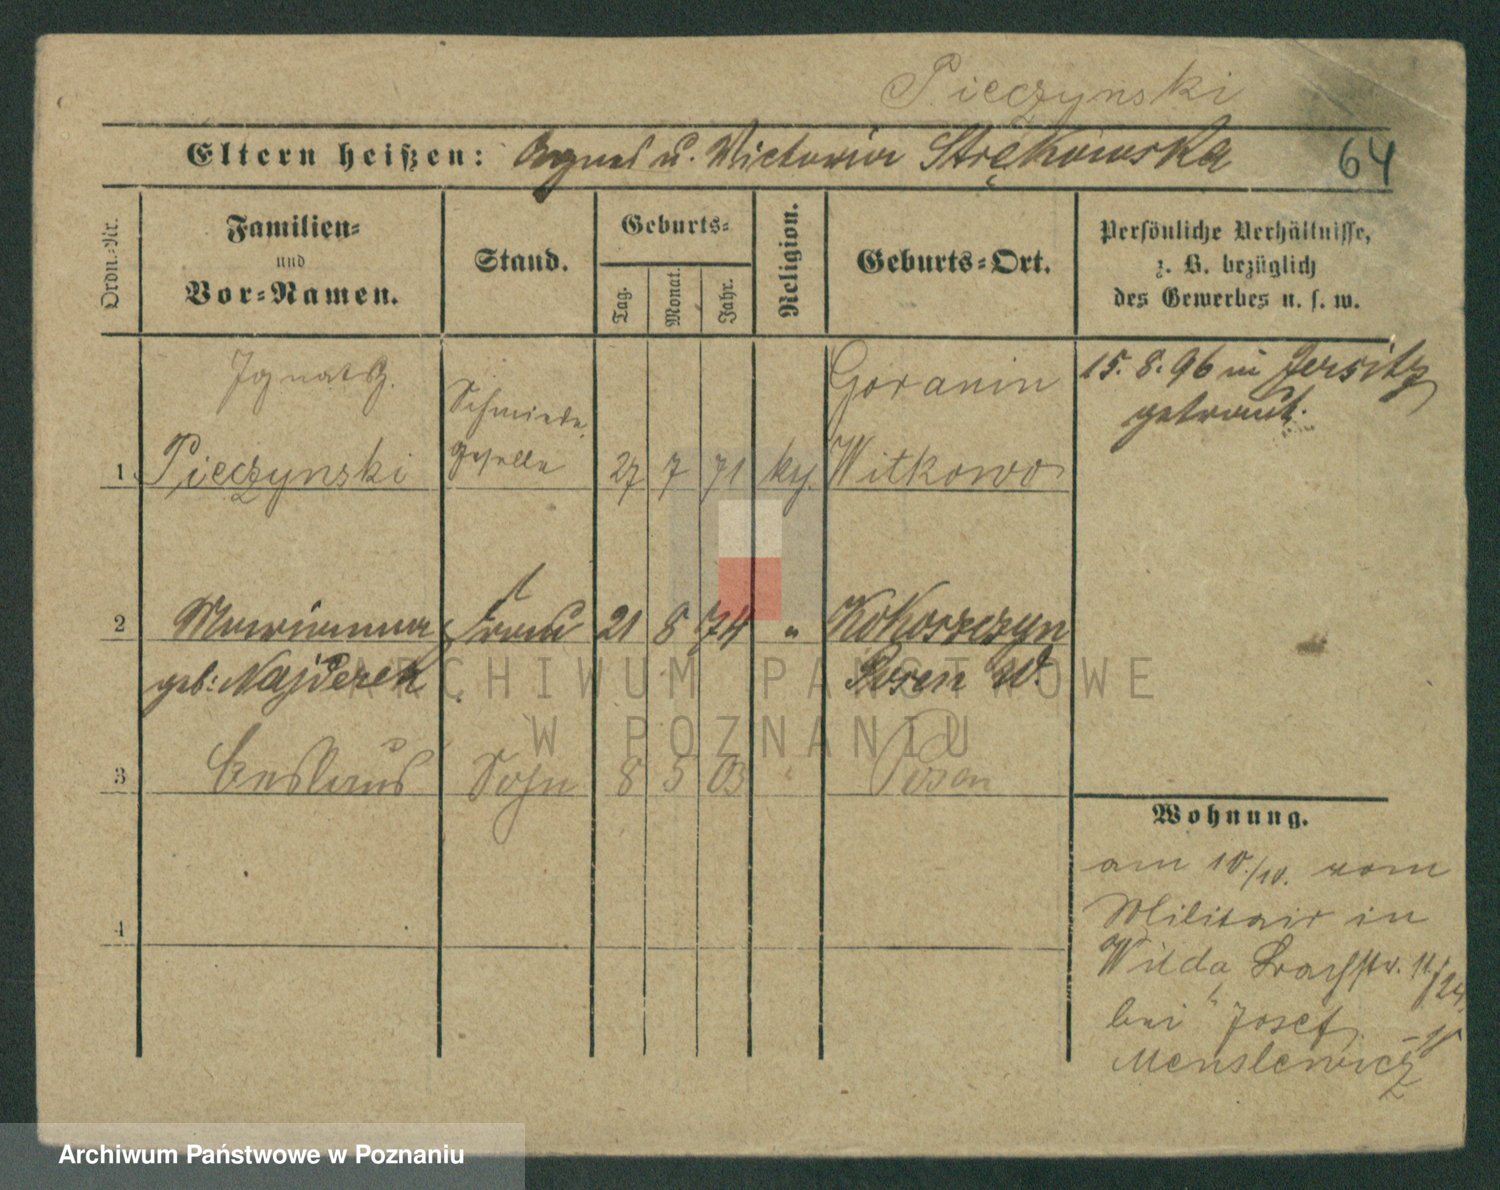 Pieczynski
Eltern heißen: u. Victoria Strękowska
64
Ordn.-Nr.
Familien-
und
Vor-Namen.
Stand.
Geburts-
Tag.
Monat.
Jahr.
Religion.
Geburts-Ort.
Persönliche Verhältnisse,
z. B. bezüglich
des Gewerbes u. s. w.
Ignatz.
Schmiede
Goranin
15. 8. 96 in Jersitz
getraut.
1 Pieczynski Geselle 27 7 71 Witkowo
2 Marianna Frau 21 8 74 " Kokoszczyn
geb: Najderek Posen W.
3 Ceslaus Sohn 8 5 03 " Posen
Wohnung.
am 10./10. vom
Militair in
Wilda, 11/
bei Josef
4
ARCHIWUM PAŃSTWOWE
W POZNANIU
Archiwum Państwowe w Poznaniu